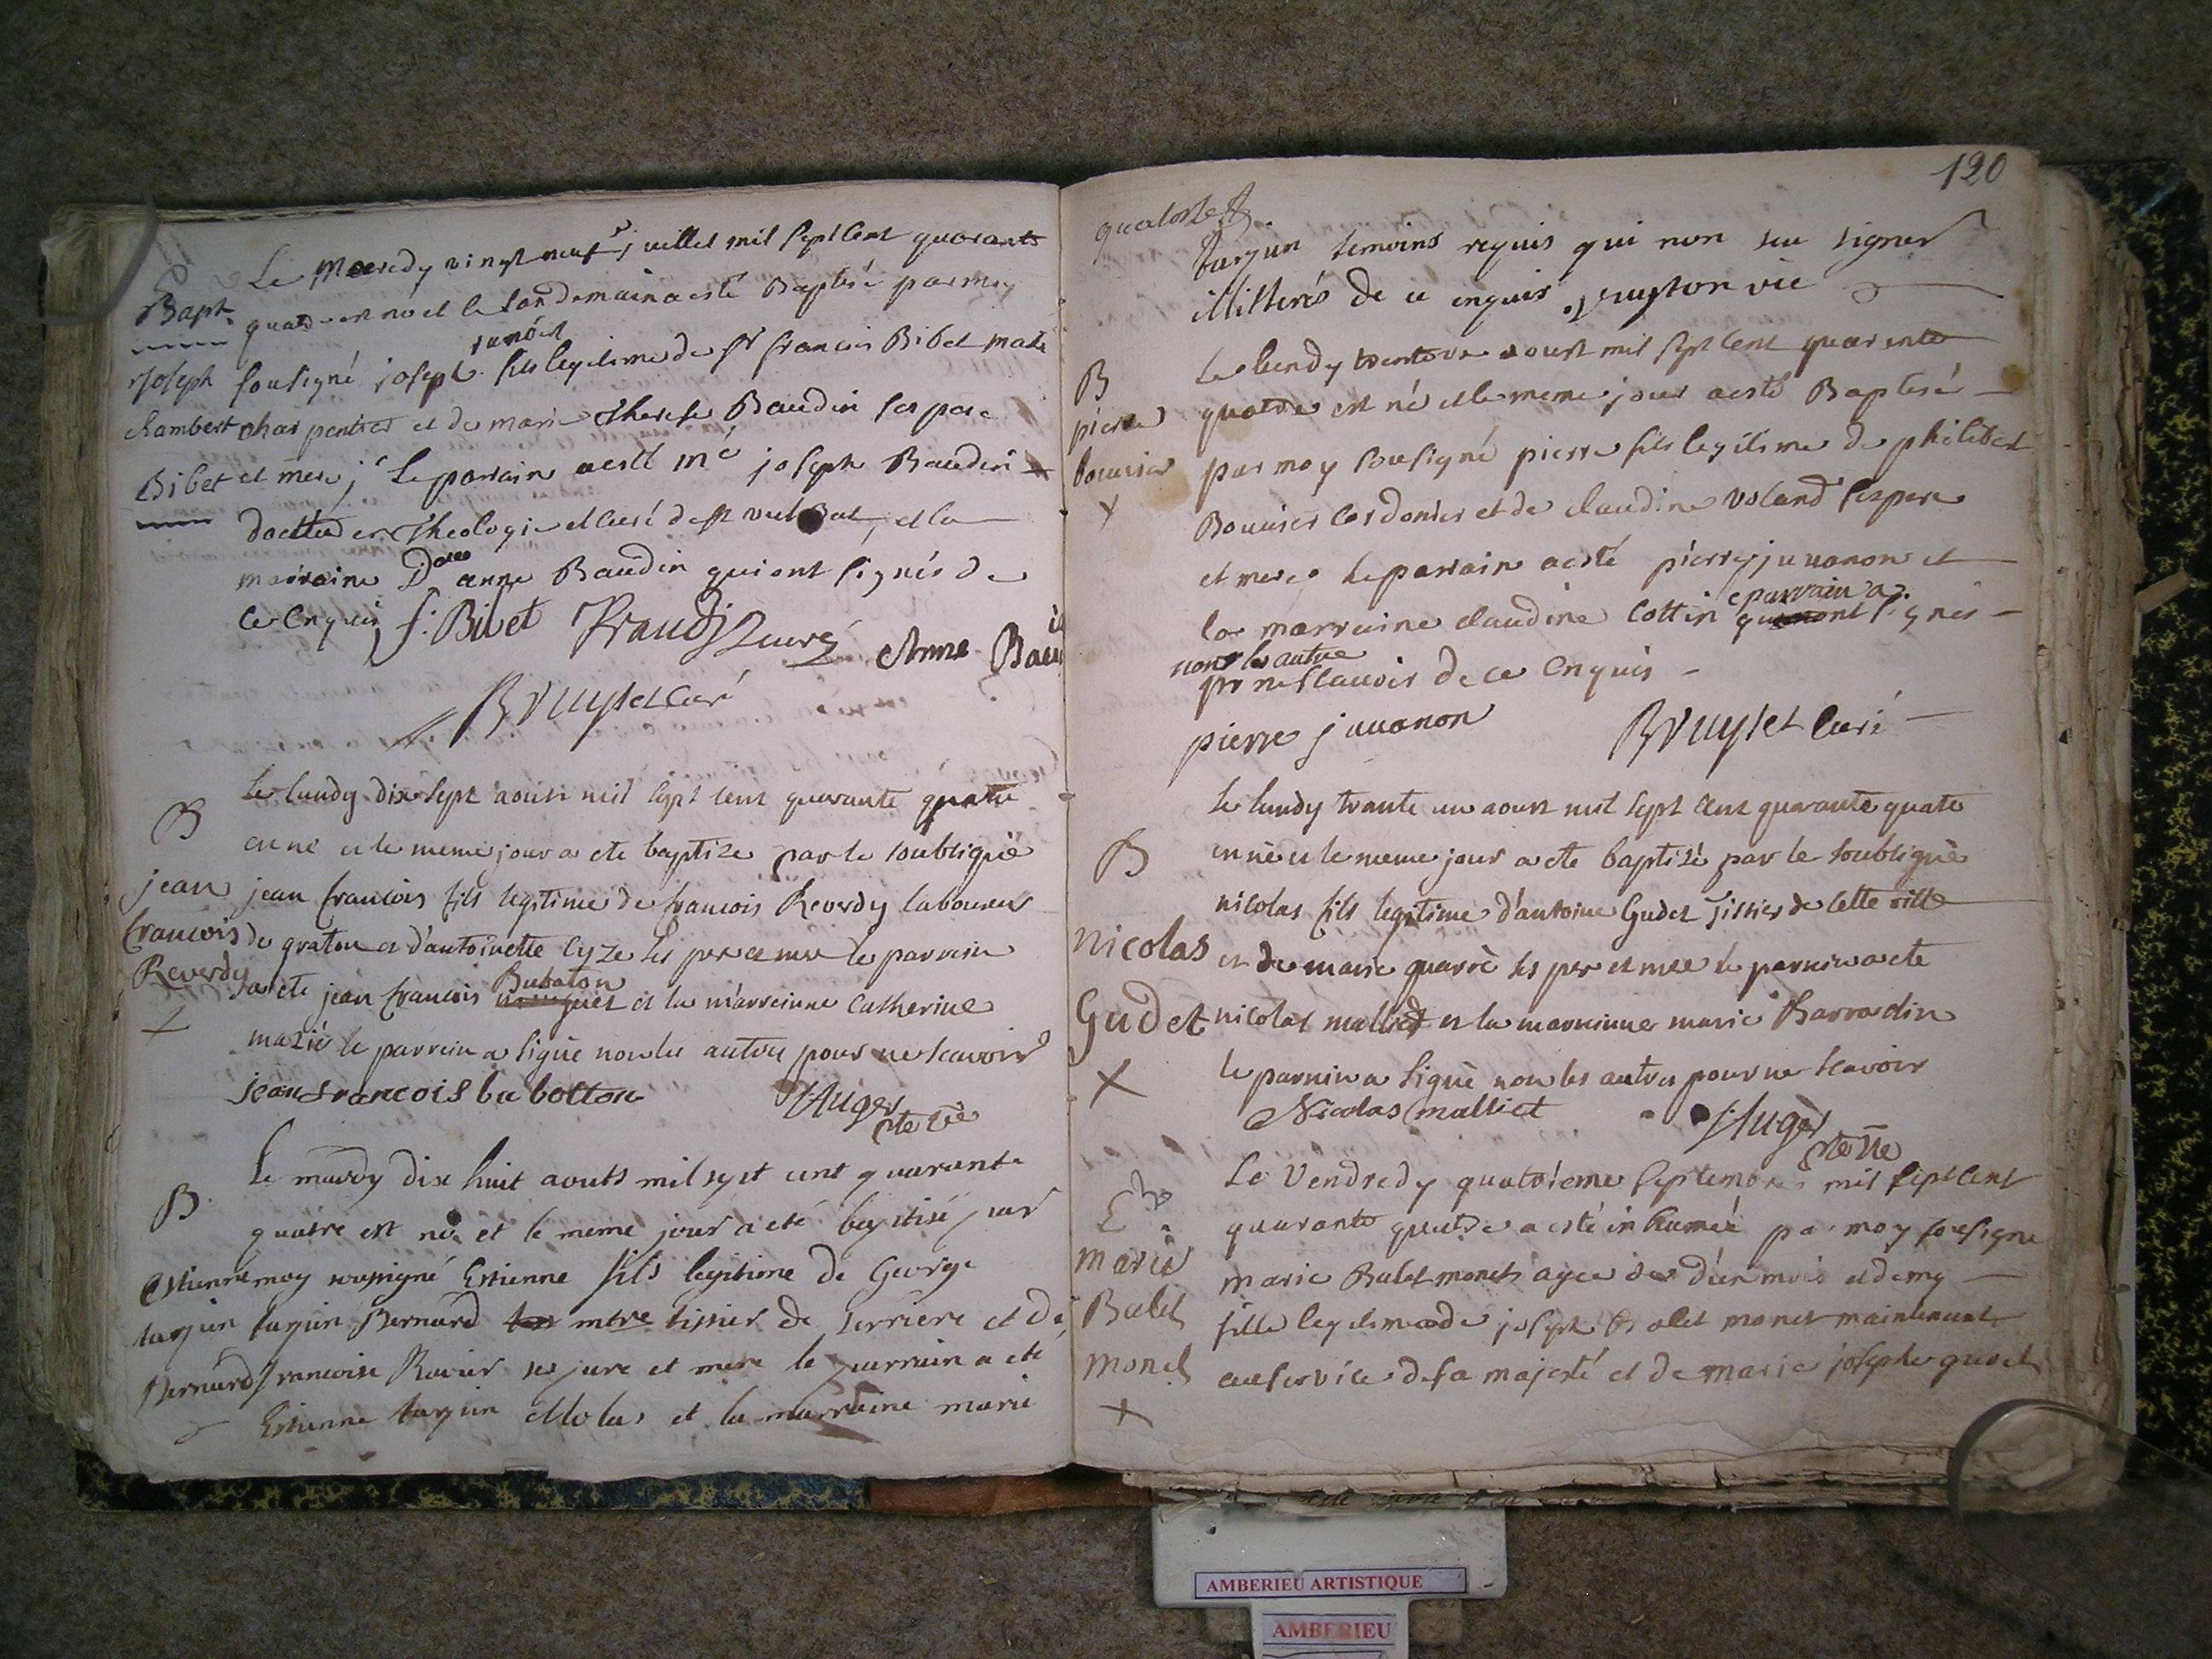 Bapt.
Joseph
Rambert
Bibet
Le Mecredy vingt neuf juillet mil sept cent quarante
quatre est né et le landemain a esté Baptisé par moy
sousigné joseph fils legitime de Sr francois Bibet maitre
charpentier et de marie therese Baudin ses pere
et mere, Le parrain a esté Me joseph Baudin
docteur en Theologie et curé de et la
marraine Dlle anne Baudin qui ont signés de
ce enquis f. Bibet curé Anne Bau
Bruyset Curé
B
jean
francois
Reverdy
Le lundy dix sept aoust mil sept cent quarante quatre
est né et le meme jour a ete baptize par le soubsigné
jean francois fils legitime de francois Reverdy laboureur
de graton et d'antoinette Cyze ses pere et mere le parrain
a ete jean francois Bubaton et la marreinne Catherine
mazié le parrein a signé non les autres pour ne scavoir
jean francois bu botton Auger
ptre vre
B
Estienne
turpin
Bernard
Le mardy dix huit aouts mil sept cent quarante
quatre est né et le meme jour a eté baptisé par
moy soussigné Estienne fils legitime de George
turpin Bernard mtre tissier de serriere et de
francoise Ravier ses pere et mere le parrain a eté
Estienne turpin et la marraine marie
120
turpin temoins requis qui non seu signer
illitterés de ce enquis
B
pierre
bouvier
Le lundy trente un aoust mil sept cent quarente
quatre est né et le meme jour a esté Baptisé
par moy sousigné pierre fils legitime de philibert
Bouvier cordonier et de claudine Voland ses pere
et mere Le parrain a esté pierre juvanon et
la marraine claudine Cottin e parrain a signés
non les autre
pr ne scavoir de ce enquis
pierre juvanon Bruyset Curé
B
Nicolas
Gudet
Le lundy trante un aoust mil sept cent quarante quatre
est né et le meme jour a ete baptisé par le soubsigné
nicolas fils legitime d'antoine Gudet tissier de cette ville
et de marie quarré ses pere et mere le parrein a ete
nicolas malliet et la marreinne marie Barrardin
le parrein a signé non les autres pour ne scavoir
Nicolas malliet Auger
ptre vre
marie
Balet
monet
Le Vendredy quatrieme septembre mil sept cent
quarante quatre a esté inhumée par moy sousigné
marie Balet monet agee d'un mois et demy
fille legitime de joseph Balet monet maintenant
au service de sa majesté et de marie josephe gudet
AMBERIEU ARTISTIQUE
AMBERIEU